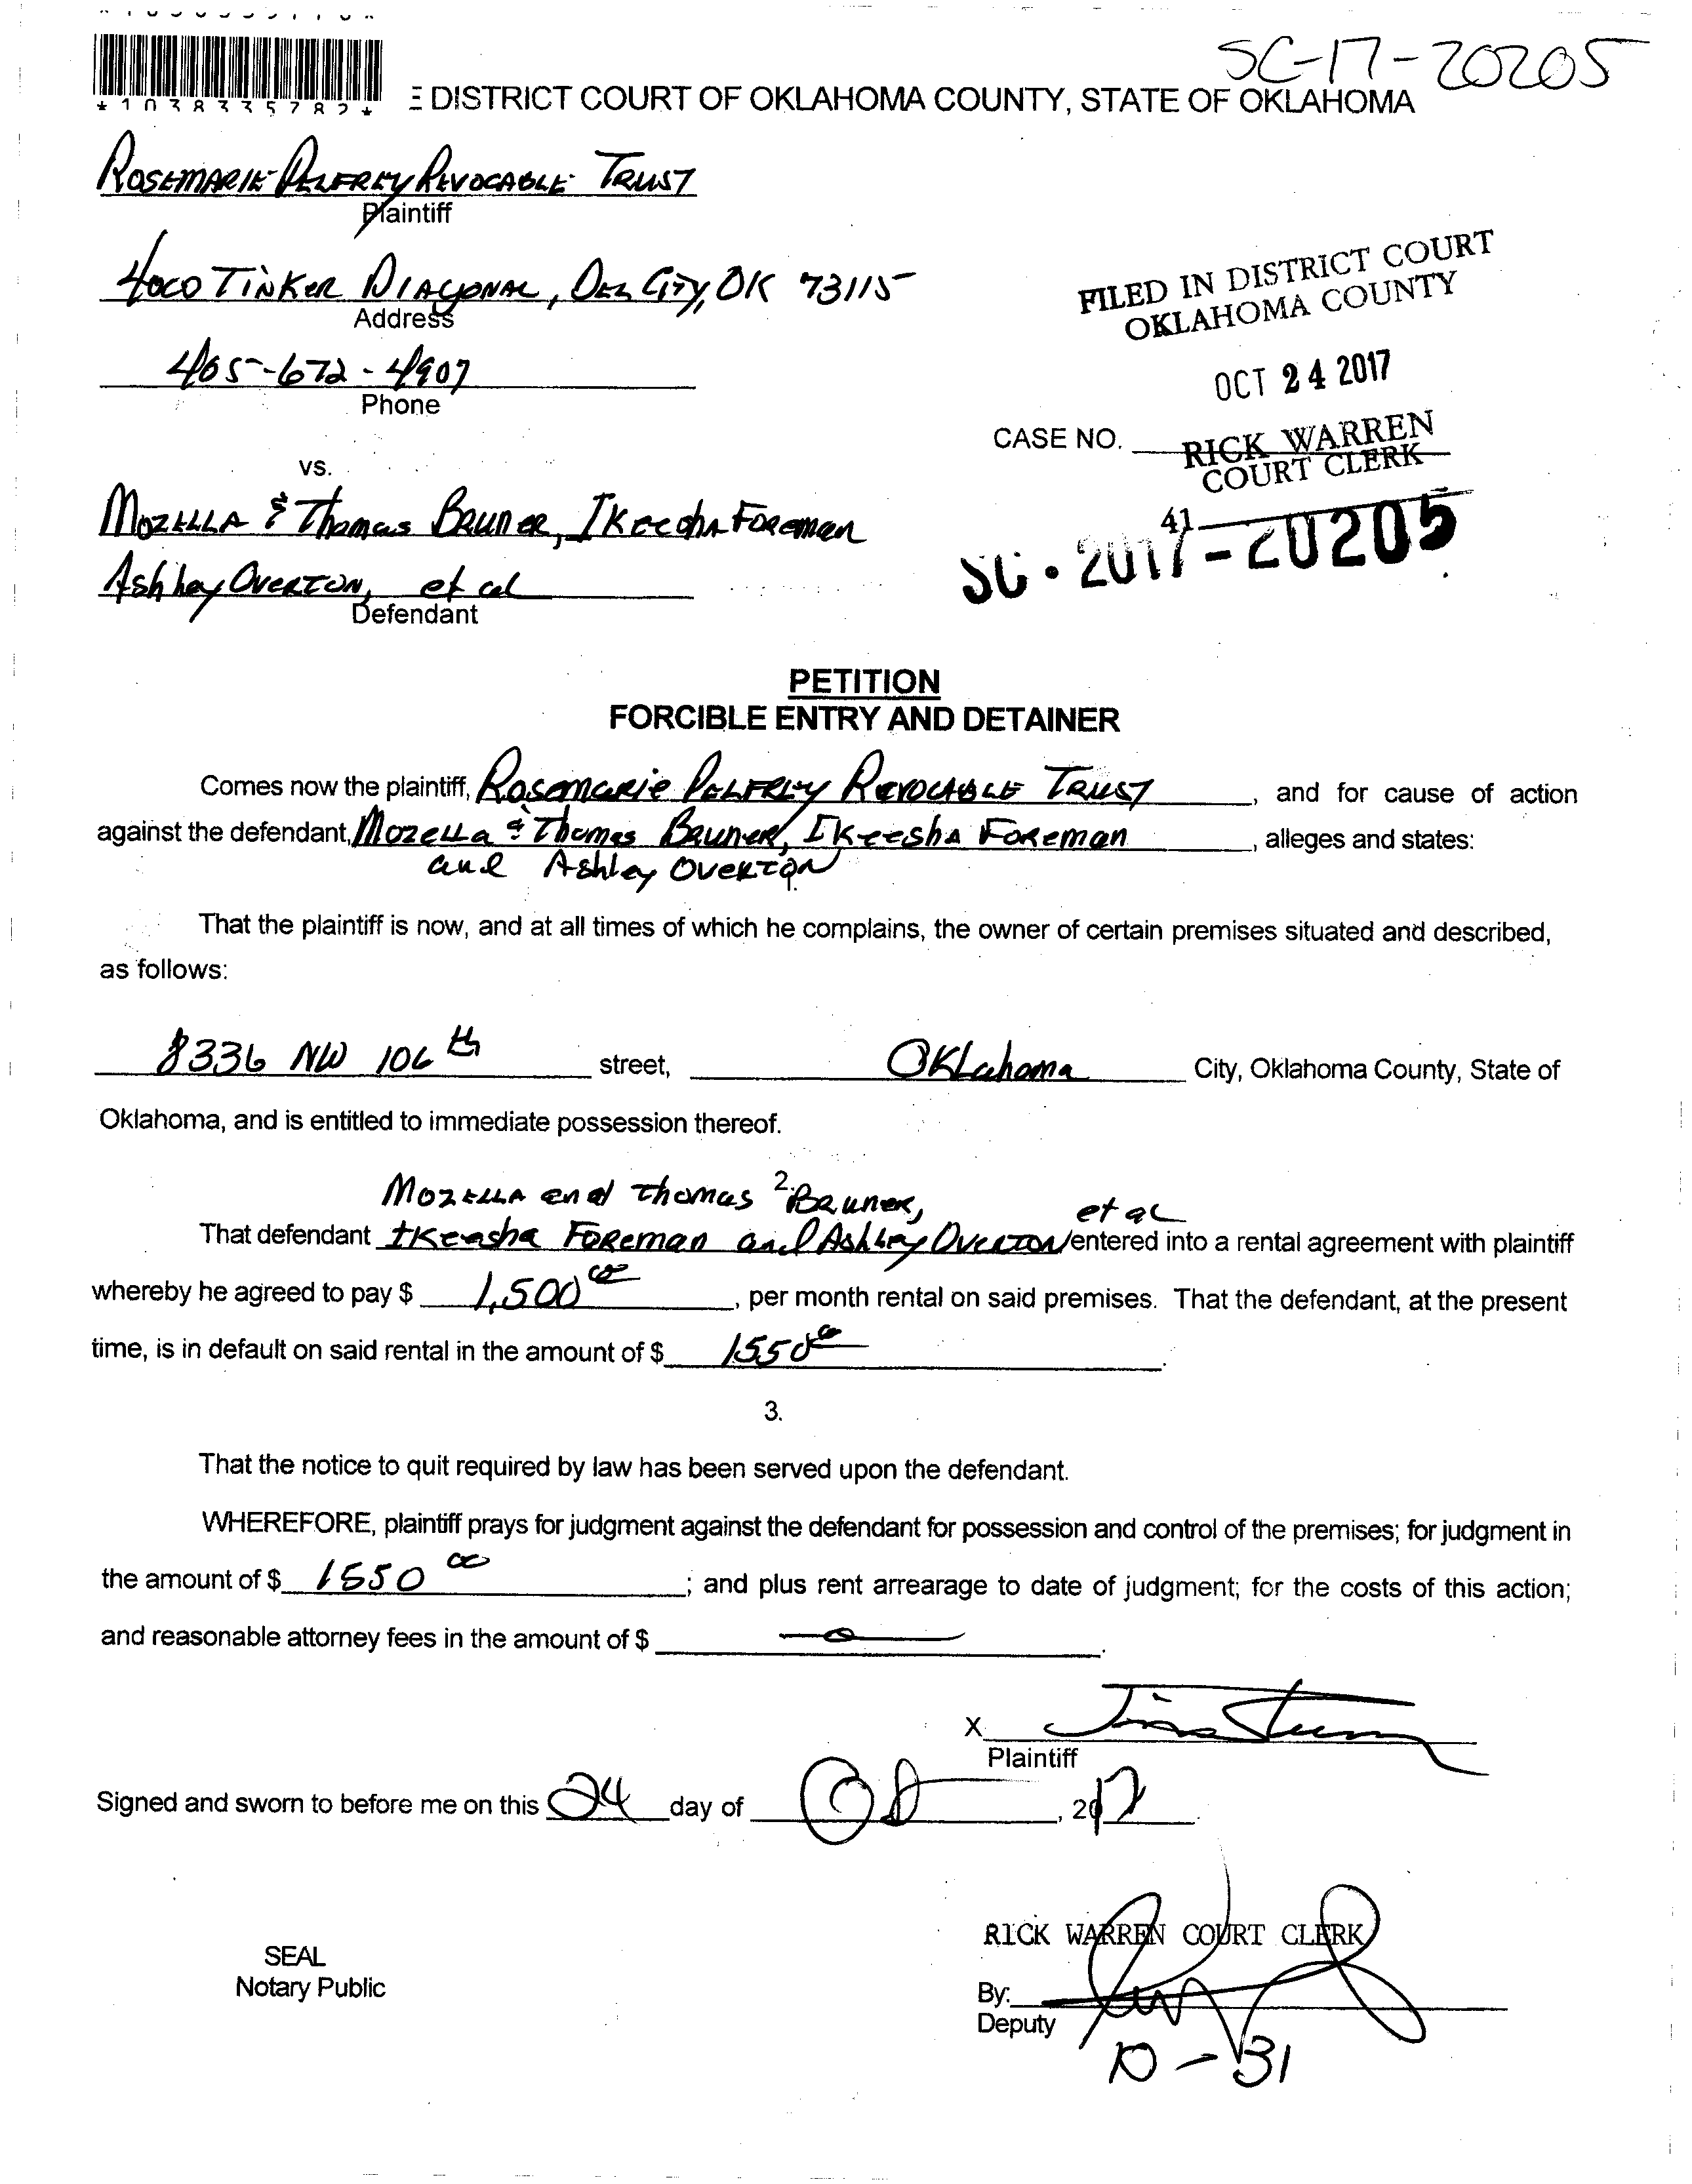 SC-17-20205
*1038335782*
DISTRICT COURT OF OKLAHOMA COUNTY, STATE OF OKLAHOMA
ROSEMARIE PELFREY REVOCABLE TRUST
Plaintiff
4000 TINKER DIAGONAL, DEL CITY, OK 73115
Address
405-672-4907
Phone
FILED IN DISTRICT COURT
OKLAHOMA COUNTY
OCT 24 2017
RICK WARREN
COURT CLERK
CASE NO.
41
SC-2017-20205
vs.
MOZELLA & Thomas BRUNER, IKeesha Foreman
Ashley OVERTON, et al
Defendant
PETITION
FORCIBLE ENTRY AND DETAINER
Comes now the plaintiff, Rosemarie PELFREY REVOCABLE TRUST, and for cause of action
against the defendant, MozeLLa & Thomas BRUNER, IKeesha FOREMAN, alleges and states:
and Ashley OVERTON
That the plaintiff is now, and at all times of which he complains, the owner of certain premises situated and described,
as follows:
8336 NW 106th street, OKLahoma City, Oklahoma County, State of
Oklahoma, and is entitled to immediate possession thereof.
2.
MOZELLA and Thomas BRUNER,
et al
That defendant IKeesha FOREMAN and Ashley OVERTON entered into a rental agreement with plaintiff
whereby he agreed to pay $ 1,500 00, per month rental on said premises. That the defendant, at the present
time, is in default on said rental in the amount of $ 1550 00.
3.
That the notice to quit required by law has been served upon the defendant.
WHEREFORE, plaintiff prays for judgment against the defendant for possession and control of the premises; for judgment in
the amount of $ 1550 00; and plus rent arrearage to date of judgment; for the costs of this action;
and reasonable attorney fees in the amount of $ —0—.
X
Plaintiff
Signed and sworn to before me on this 24 day of Oct, 2017.
SEAL
Notary Public
RICK WARREN COURT CLERK
By:
Deputy
10-31